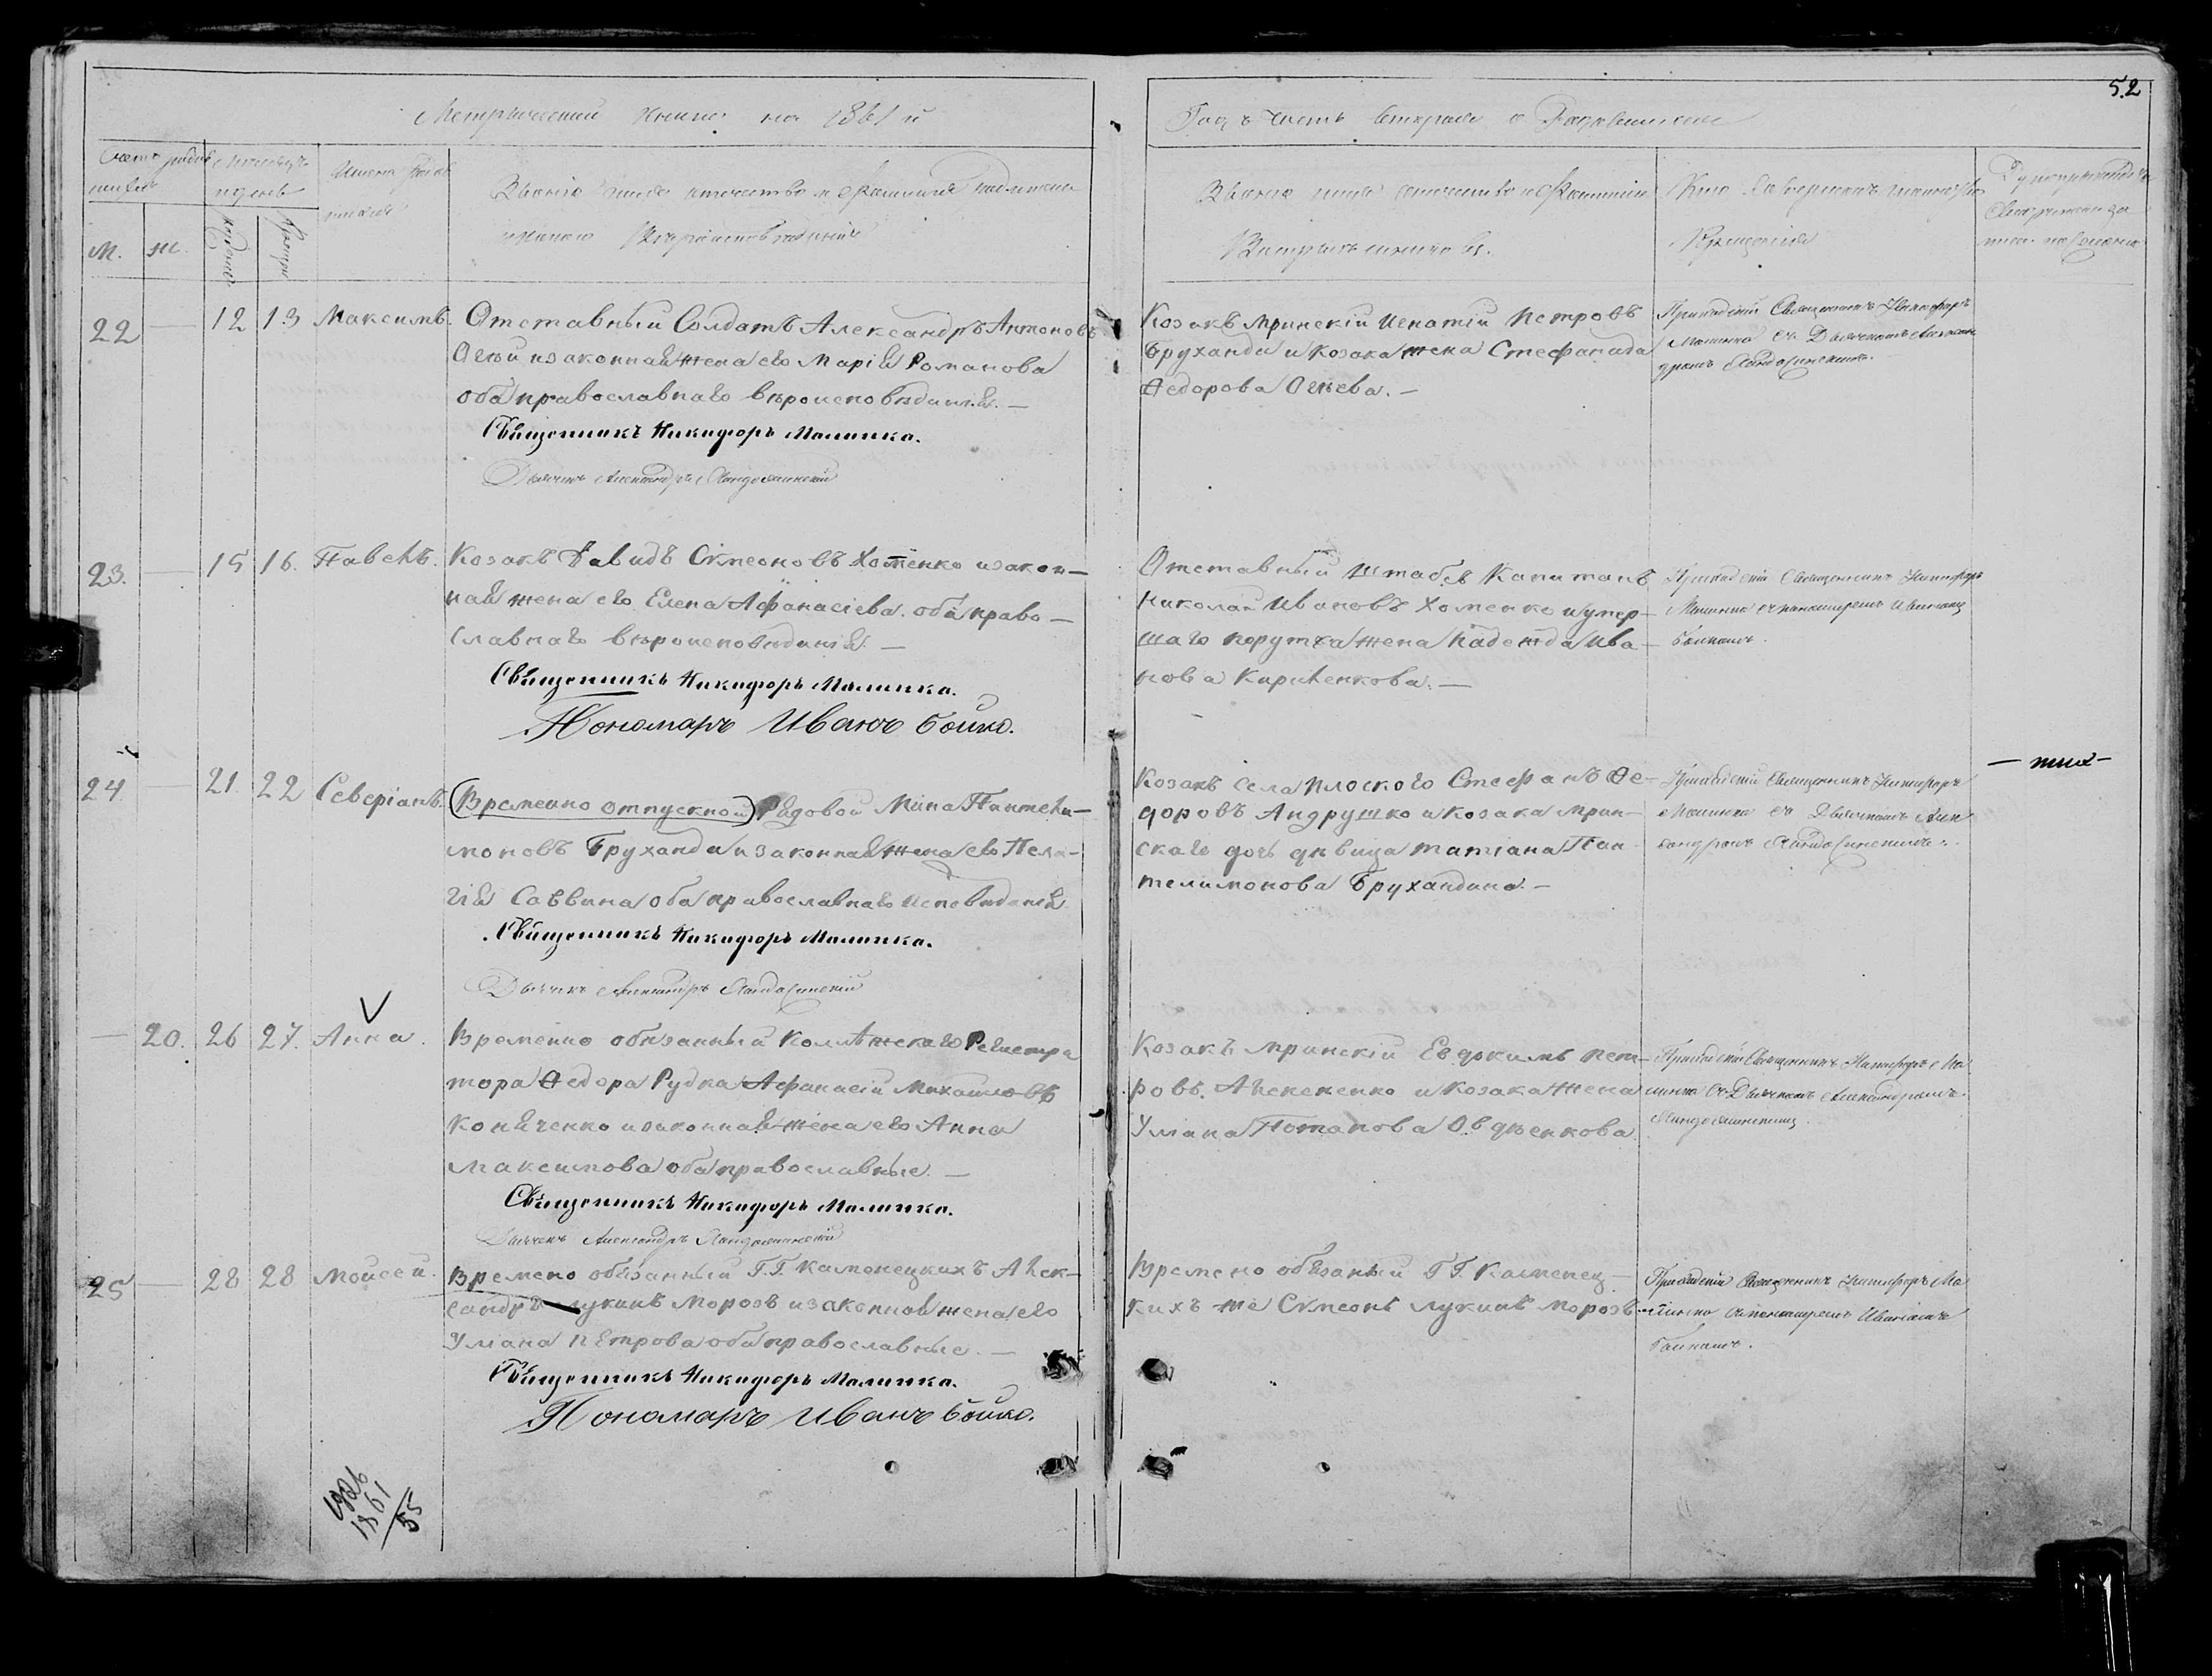 52
Метрической книги на 1861 й
Годъ часть вторая о Родившихся
Счетъ родив
шихся
Месяцъ
и день
Имена родив
шихся
Званіе имя отчество и фамилія родителей
и какого Вероисповеданія
Званіе имя отчество и фамилія
Воспріемниковъ.
Кто совершалъ таинство
Крещенія
Рукоприкладство
свидетелей за
писи по желанію
М.
Ж.
рожденія
крещенія
22 — 12 13 Максимъ.
Отставный Солдатъ Александръ Антоновъ
Огюй и законная жена его Марія Романова
оба православнаго вероисповеданія. —
Священникъ Никифоръ Малинка.
Дьячекъ Александръ
Козакъ Мринскій Игнатій Петровъ
Бруханда и Козака жена Стефанида
Федорова Огіева. —
Приходскій Священникъ Никифоръ
Малинка съ Дьячкомъ Алексан
дромъ
23. — 15 16. Павелъ.
Козакъ Давидъ Сѵмеоновъ Хоменко и закон—
ная жена его Елена Афанасіева оба право—
славнаго вероисповеданія. —
Священникъ Никифоръ Малинка.
Пономарь Иванъ Бойко.
Отставный Штабсъ Капитанъ
Николай Ивановъ Хоменко и умер—
шаго порутчика жена Надежда Ива—
нова Кириленкова. —
Приходскій Священникъ Никифоръ
Малинка съ пономаремъ Иваномъ
Бойкомъ.
24 — 21. 22 Северіанъ.
(Временно отпускной) Рядовой Мина Пантели—
моновъ Бруханда и законная жена его Пела—
гія Саввина оба православнаго исповеданія.
Священникъ Никифоръ Малинка.
Дьячекъ Александръ
Козакъ села Плоского Стефанъ Фе—
доровъ Андрушко и козака Мрин—
скаго дочь девица Татіана Пан—
телимонова Брухандина. —
Приходскій Священникъ Никифоръ
Малинка съ Дьячкомъ Алек
сандромъ
— 20. 26 27. Анна.
Временно обязанный Коллежскаго Регистра
тора Федора Рудка Афанасій Михайловъ
Коняченко и законная жена его Анна
Максимова оба православные. —
Священникъ Никифоръ Малинка.
Дьячекъ Александръ
Козакъ Мринскій Евдокимъ Пет—
ровъ Алексеенко и Козака жена
Уліана Потапова Овдѣенкова.
Приходскій Священникъ Никифоръ Ма
линка съ Дьячкомъ Александромъ
25 — 28 28 Мойсей.
Времено обязанный Г.Г. Каменецкихъ Алек—
сандръ Лукинъ Морозъ и законная жена его
Уліана Петрова оба православные. —
Священникъ Никифоръ Малинка.
Пономарь Иванъ Бойко.
Времено обязаный Г.Г. Каменец—
кихъ же Сѵмеонъ Лукинъ Морозъ —
Приходскій Священникъ Никифоръ Ма
линка съ пономаремъ Иваномъ
Бойкомъ.
1861
55